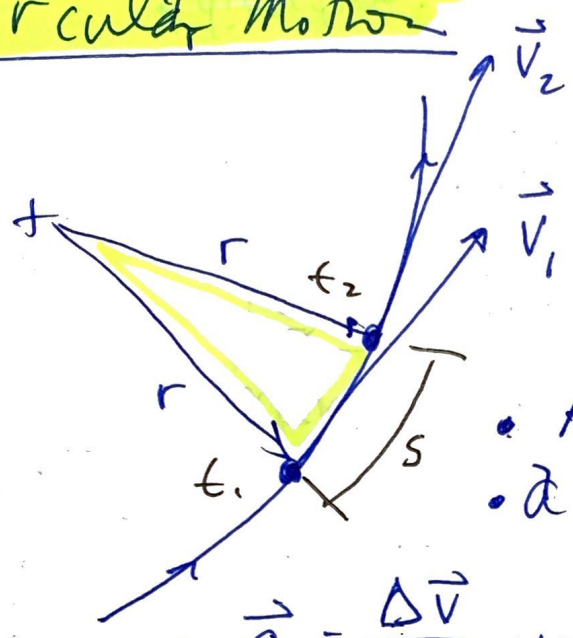 rcular Motion
V⃗₂
V⃗₁
r
t₂
r
S
t₁
ΔV⃗